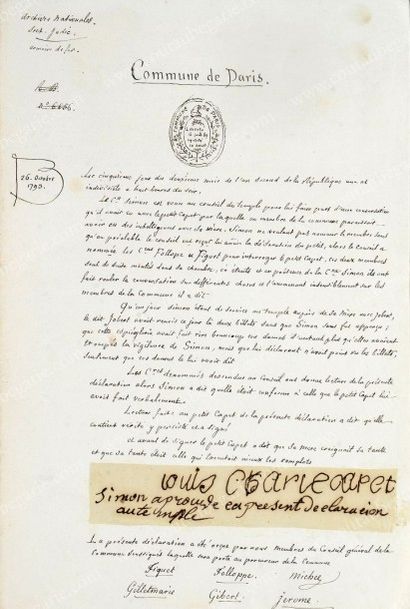 Archives Nationales.
Sect. Judic.
armoire de fer.
Commune de Paris.
n° 6666.
26. Octobre
1793.
Le cinquième jour du deuxième mois de l'an second de la République une et
indivisible à huit heures du soir.
Le Cen Simon est venu au conseil du temple pour lui faire part d'une conversation
qu'il avait eu avec le petit Capet par laquelle un membre de la commune paraissait
avoir eu des intelligences avec sa mère. Simon ne voulant pas nommer le membre sans
qu'au préalable le conseil eut reçu lui même la déclaration du petit, alors le Conseil a
nommés les Cens Follope et Figuet pour interroger le petit Capet, ces deux membres
sont de suite montés dans la chambre, et étants et en présence de la Cenne Simon ils ont
fait rouler la conversation sur différentes choses et l'amenant insensiblement sur les
membres de la Commune il a dit
Qu'un jour Simon étant de service au temple auprès de sa Mère avec Jobert,
le dit Jobert avait remis ce jour là deux billets sans que Simon s'en fut apperçu;
que cette espièglerie avait fait rire beaucoup ces dames d'avoir
trompé la vigilance de Simon, mais que lui déclarant n'avait point vu les billets,
seulement que ces dames le lui avait dit.
Les Cens dénommés descendus au Conseil ont donné lecture de la présente
déclaration alors Simon a dit quelle était conforme à celle que le petit Capet lui
avait fait verbalement.
Lecture faite au petit Capet de la présente déclaration a dit qu'elle
contient vérité y persiste et a signé
et avant de signer le petit Capet a dit que sa mère craignait sa tante
et que sa tante était celle qui exécutait mieux les complots
Louis Charle Capet
Simon
au temple
La présente déclaration a été reçue par nous membres du Conseil général de la
Commune soussignés laquelle sera portée au procureur de la Commune
Figuet Folloppe Michée
Gilletmarie Gibert Jerome